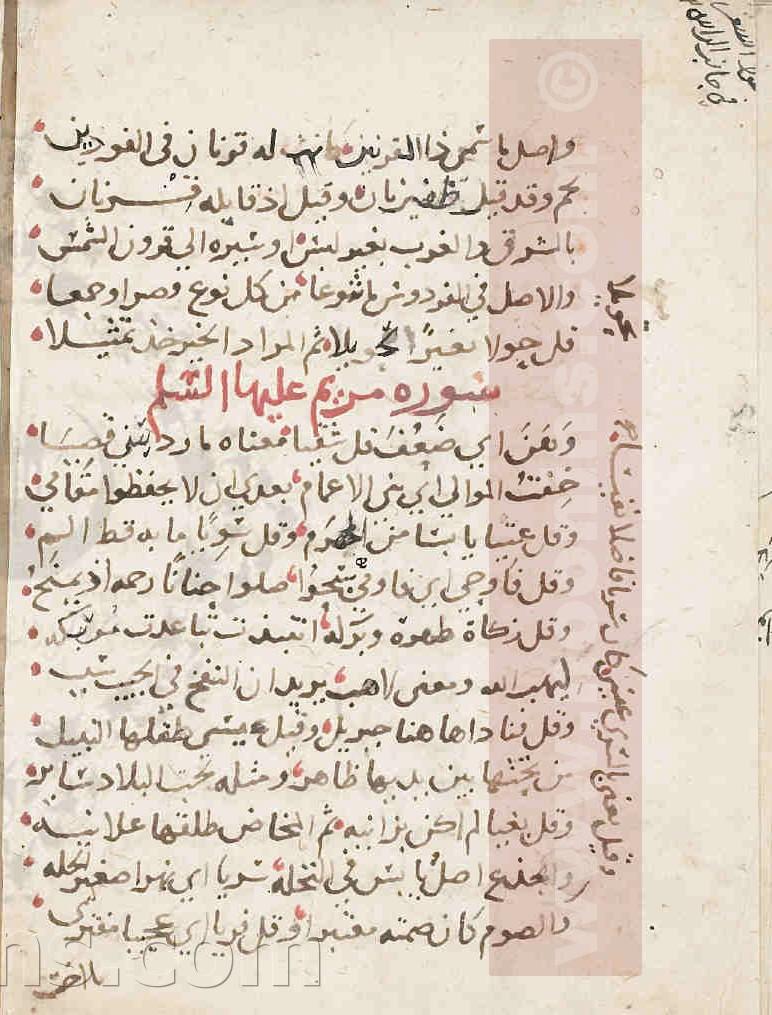 واصل ما سمي ذا القرنين كانت له قرنان في الفودين
ثم وقد قيل ظفيرتان وقيل اذ قابله قرنان
بالشرق والغرب بغير لبس وسيره الي قرون الشمس
والاصل في الفردوس ما تنوعا من كل نوع وصرا وجمعا
قل حولا تغيرا تحويلا ثم المراد الخير خذ تمثيلا
سورة مريم عليها السلم
وَهَنَ اي ضَعُفَ قل شقيا معناه ما رددتني قصيا
خِفْتُ الموالي اي بني الاعمام بعدي ان لا يحفظوا مقامي
وقل عتيا يابسا من الهرم وقل سويا ما به قط الم
وقل فاوحي اي فاومي سبحوا صلوا حنانا رحمه اذ يمنح
وقل زكاة طهرة وبركه انتبذت تباعدت
ليهب الله ومعنى لاهب يريد ان النفخ في الجيب سبب
وقل فناداها هنا جبريل وقيل عيسى طفلها النبيل
من تحتها بين يديها ظاهر ومثله تحت البلاد سائر
وقل بغيا لم اكن بزانيه ثم المخاض طلقها علانيه
والجذع اصل يابس في النخله سريا اي نهرا صغيرا
والصوم كان صمته معتبرا وقل فريا اي عجيبا مفترى
تحويلا
وقيل يعني بالسري عيسى كان سريا فاضلا نفيسا
في جانب الراس
www.
ns.com
©